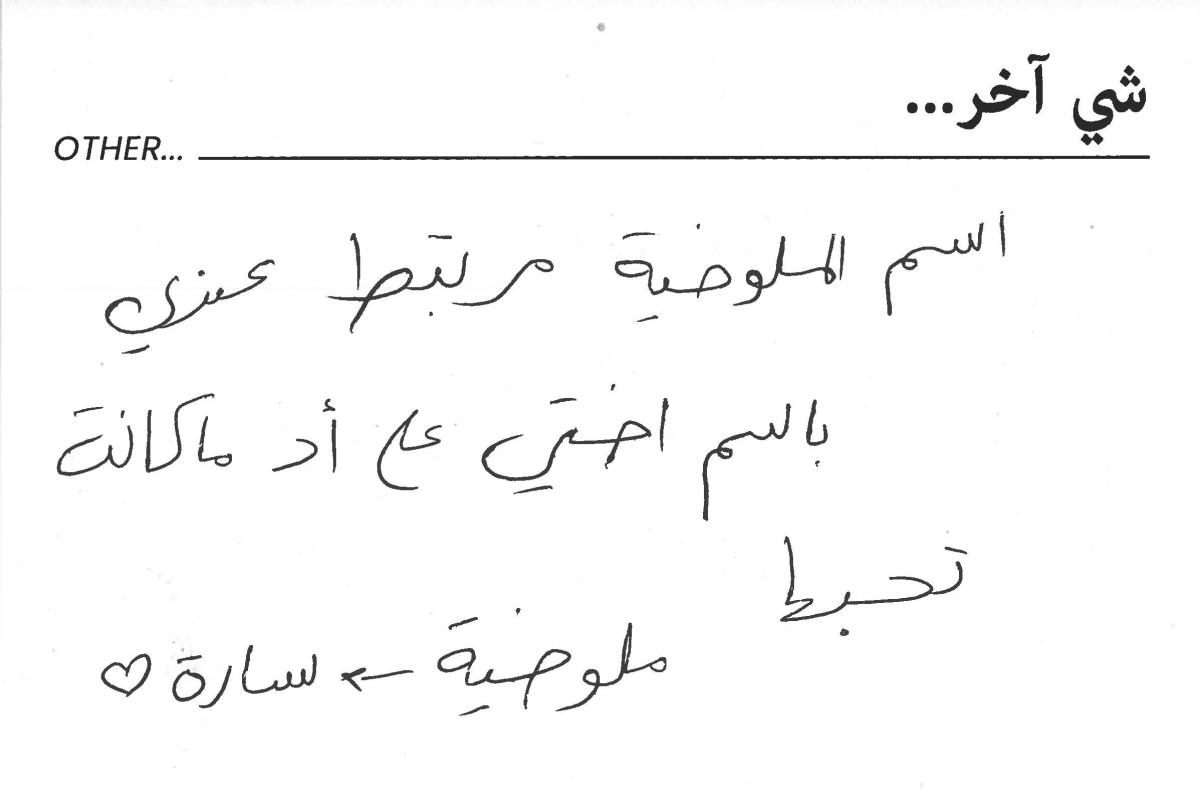 شي آخر...
OTHER...
اسم الملوخية مرتبط عندي
باسم اختي على أد ما كانت
تحبها
ملوخية ← سارة ♡